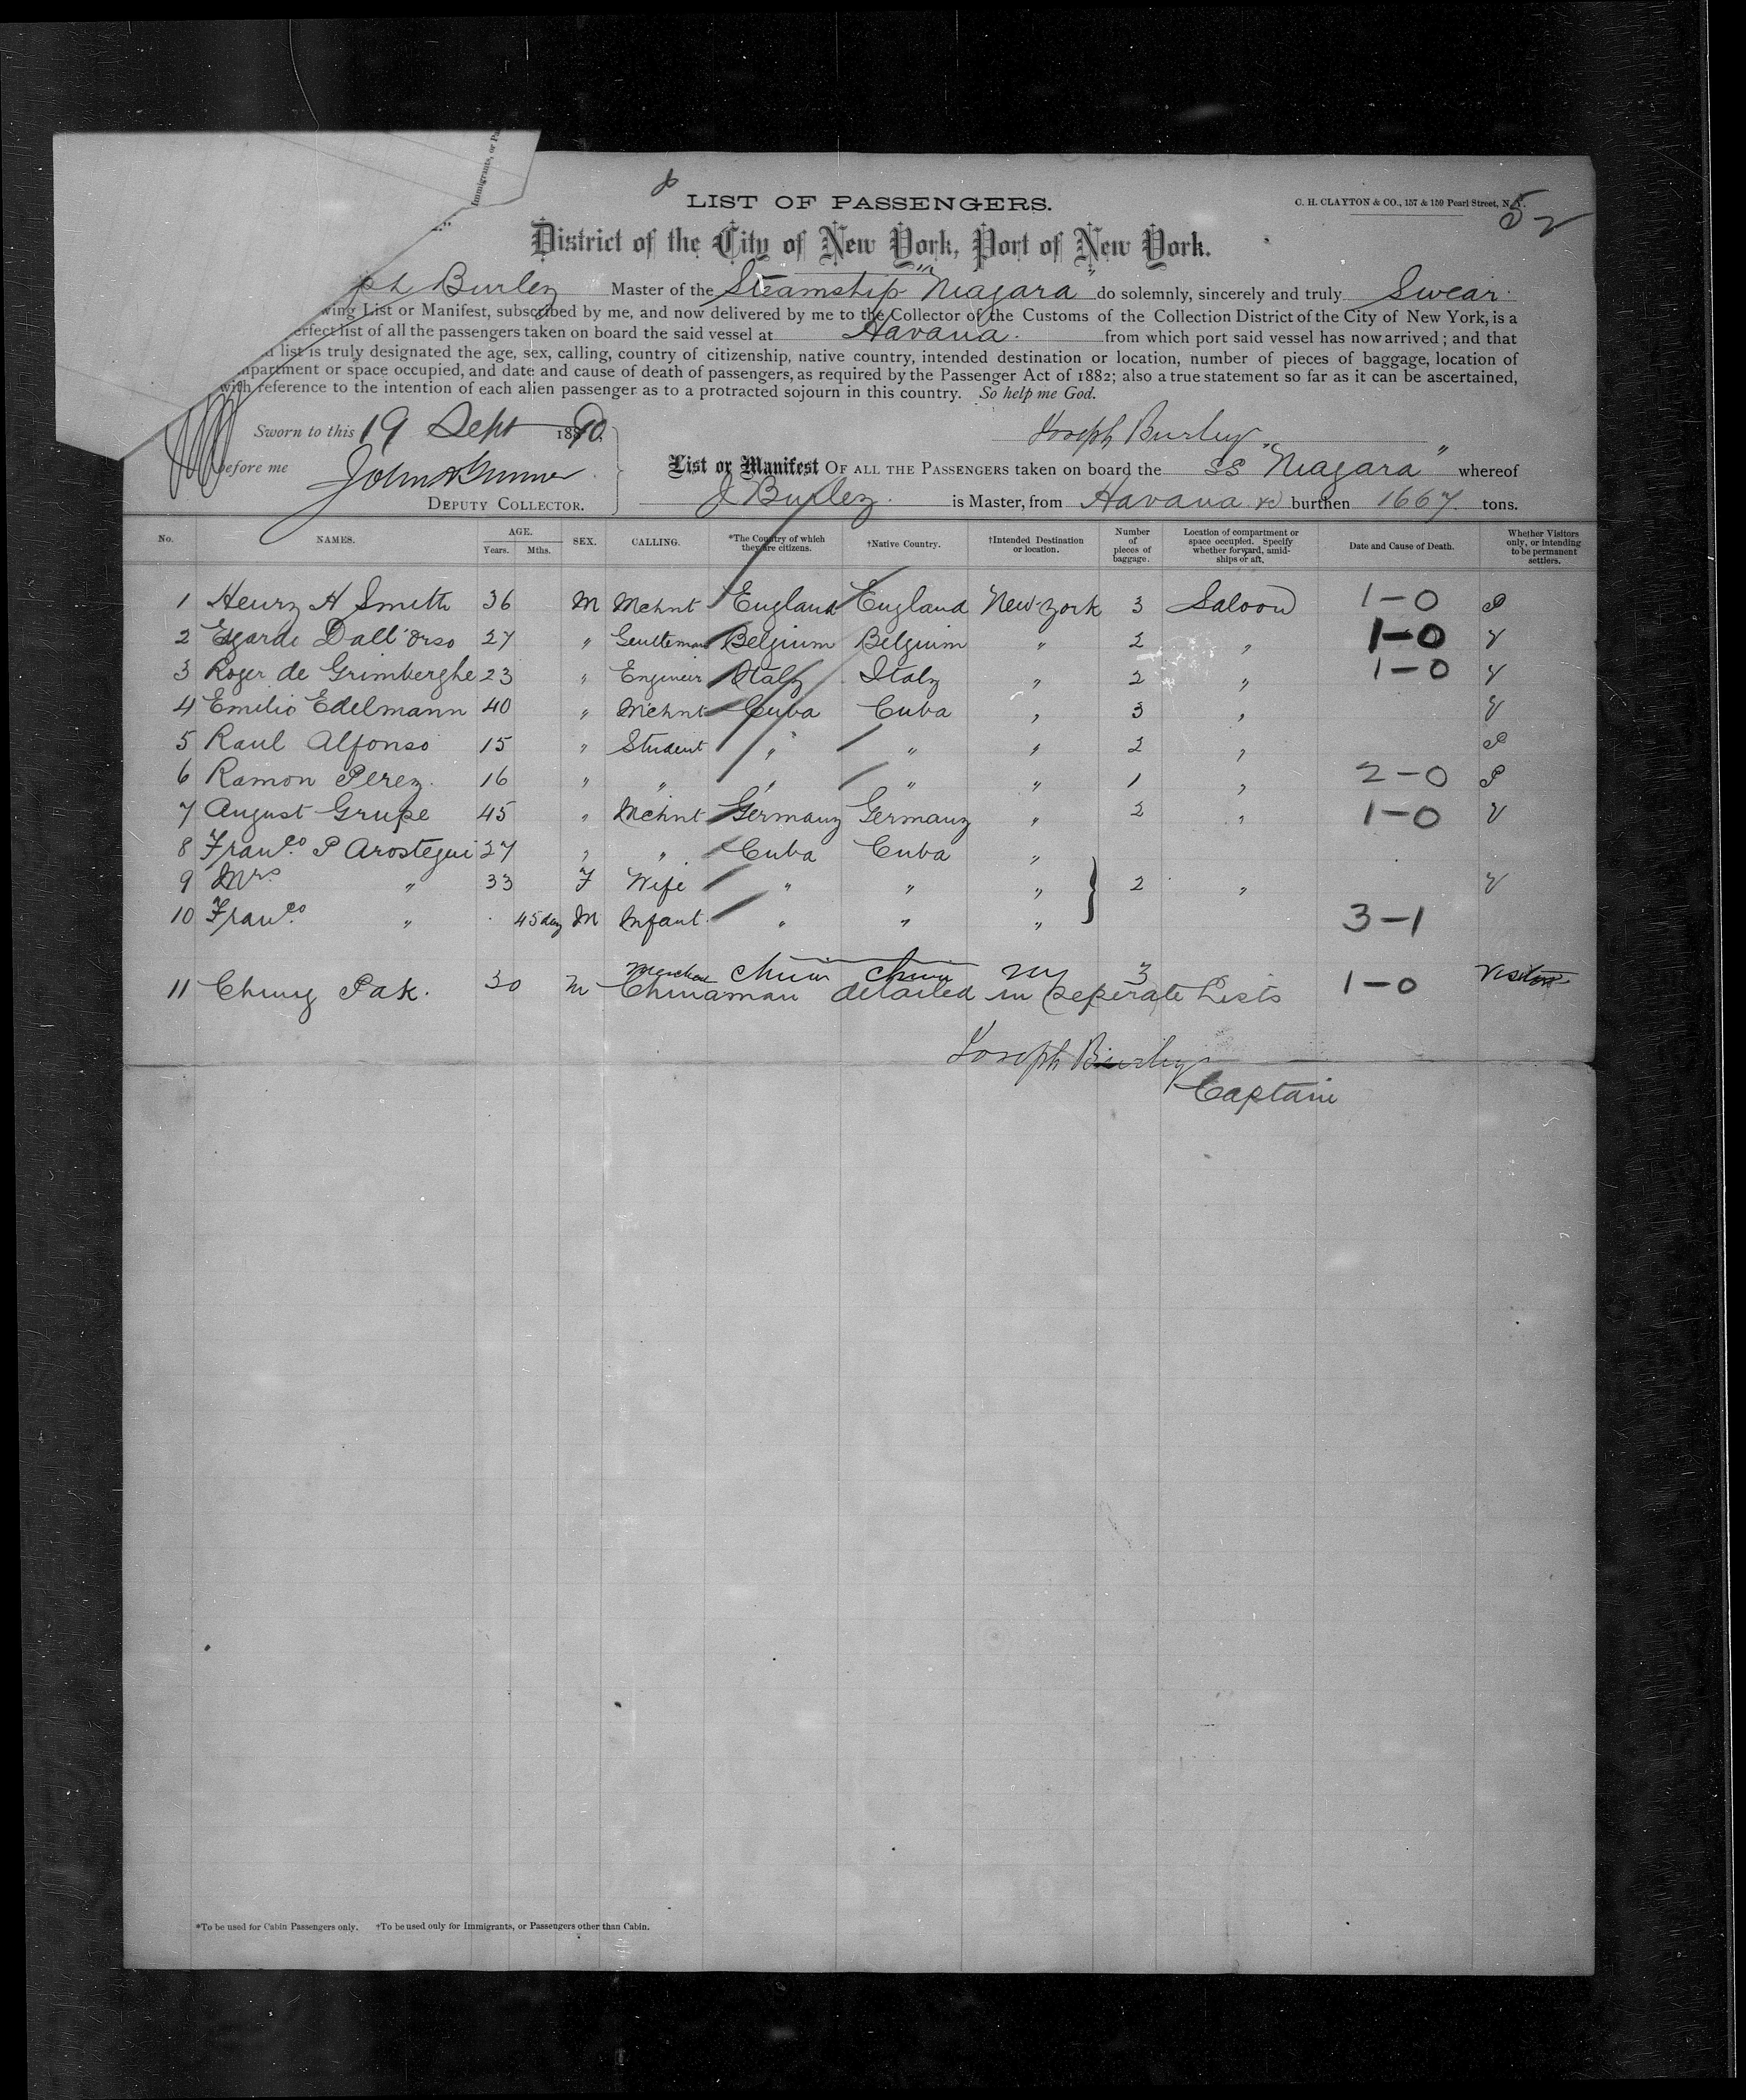 Immigrants, or Pa
LIST OF PASSENGERS.
C. H. CLAYTON & CO., 157 & 159 Pearl Street, N. Y.
52
District of the City of New York, Port of New York.
ph Burley Master of the Steamship "Niagara" do solemnly, sincerely and truly Swear
wing List or Manifest, subscribed by me, and now delivered by me to the Collector of the Customs of the Collection District of the City of New York, is a
erfect list of all the passengers taken on board the said vessel at Havana. from which port said vessel has now arrived; and that
d list is truly designated the age, sex, calling, country of citizenship, native country, intended destination or location, number of pieces of baggage, location of
mpartment or space occupied, and date and cause of death of passengers, as required by the Passenger Act of 1882; also a true statement so far as it can be ascertained,
with reference to the intention of each alien passenger as to a protracted sojourn in this country. So help me God.
Sworn to this 19 Sept 1890. Joseph Burley
before me
List or Manifest OF ALL THE PASSENGERS taken on board the SS "Niagara" whereof
DEPUTY COLLECTOR.
J Burley. is Master, from Havana burthen 1667. tons.
No. NAMES. AGE. Years. Mths. SEX. CALLING. *The Country of which they are citizens. †Native Country. †Intended Destination or location. Number of pieces of baggage. Location of compartment or space occupied. Specify whether forward, amidships or aft. Date and Cause of Death. Whether Visitors only, or intending to be permanent settlers.
1 Henry H Smith 36 M Mchnt England England New York 3 Saloon 1-0 P
2 Egardo Dall'Orso 27 " Gentleman Belgium Belgium " 2 " 1-0 V
3 Roger de Grimberghe 23 " Engineer Italy Italy " 2 " 1-0 V
4 Emilio Edelmann 40 " Mchnt Cuba Cuba " 3 " V
5 Raul Alfonso 15 " Student " " " 2 " P
6 Ramon Perez. 16 " " " " " 1 " 2-0 P
7 August Grupe 45 " Mchnt Germany Germany " 2 " 1-0 V
8 Franco. P Arostegui 27 " " Cuba Cuba "
9 Mrs " 33 F Wife " " " 2 " V
10 Franco " 45 day M Infant. " " " 3-1
Merchant China China NY 3
11 Chung Pak. 30 M Chinaman detailed in seperate Lists 1-0 Visitor
Joseph Burley
Captain
*To be used for Cabin Passengers only. †To be used only for Immigrants, or Passengers other than Cabin.